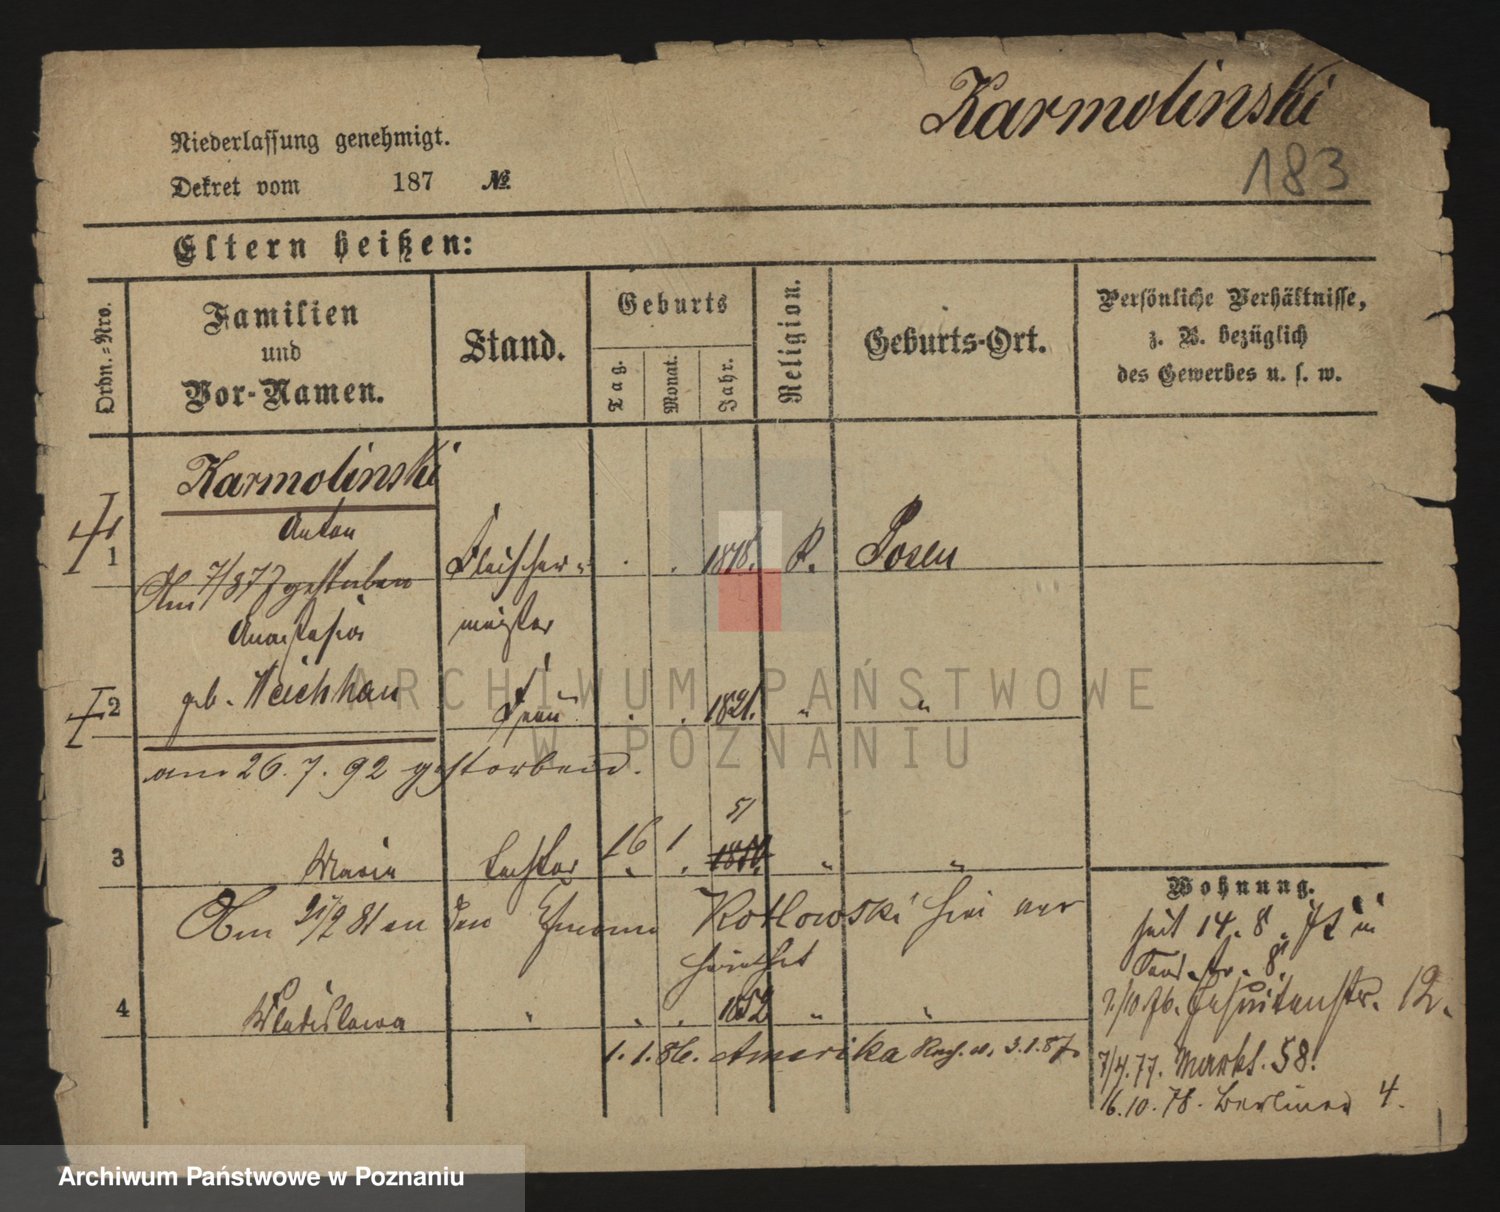 Karmolinski
183
Niederlassung genehmigt.
Dekret vom 187 №
Eltern heißen:
Ordn.-Nro.
Familien und Vor-Namen.
Stand.
Geburts
Tag.
Monat.
Jahr.
Religion.
Geburts-Ort.
Persönliche Verhältnisse,
z. B. bezüglich
des Gewerbes u. s. w.
Karmolinski
Anton
1 Fleischer- 1818. K. Posen
Am 7/3 87 gestorben
Anastasia meister
2 geb. Frau 1821. " "
am 26. 7. 92 gestorben.
51
3 Maria Tochter 16 1. " "
Am 21/2 81 an den Kotlowski hier ver
heirathet
4 Wladislawa " 1852 " "
1.1.86. Amerika 3.1.87.
Wohnung.
seit 14. 8. in
8.
2/10 76. Jesuitenstr. 12.
7/4. 77. Markt. 58.
16.10.78. Berliner 4.
ARCHIWUM PAŃSTWOWE
W POZNANIU
Archiwum Państwowe w Poznaniu